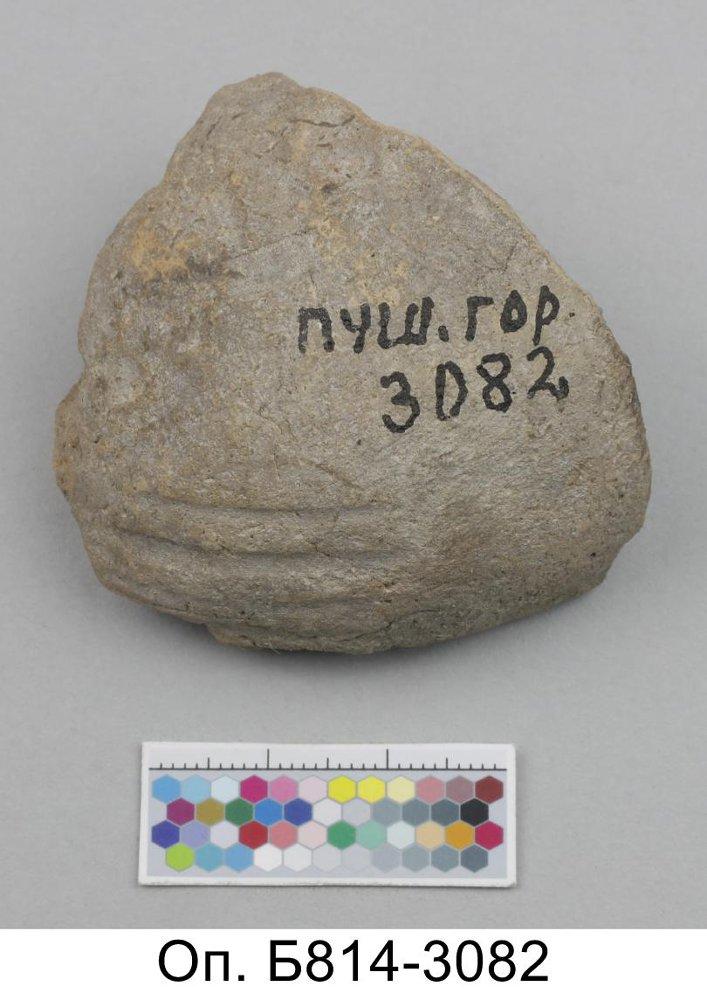 пуш. гор.
3082
Оп. Б814-3082